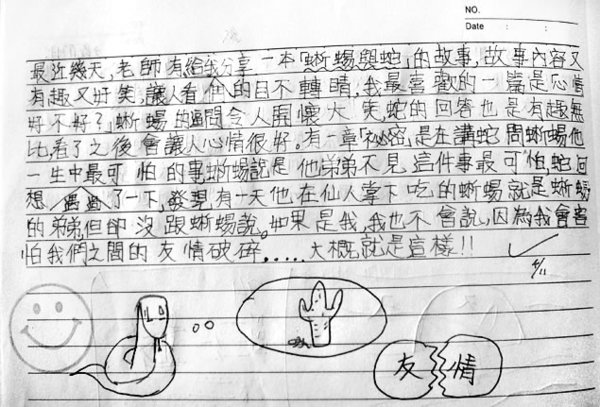 NO.
Date
最近幾天,老師有給我分享一本「蜥蜴與蛇」的故事,故事內容又
有趣又好笑,讓人看個目不轉睛,我最喜歡的一篇是「心情
好不好?」蜥蜴的疑問令人開懷大笑,蛇的回答也是有趣無
比,看了之後會讓人心情很好。有一章「秘密」是在講蛇問蜥蜴他
一生中最可怕的事,蜥蜴說是他弟弟不見這件事最可怕,蛇回
想了一下,發現有一天他在仙人掌下吃的蜥蜴就是蜥蜴
的弟弟但卻沒跟蜥蜴說。如果是我,我也不會說,因為我會害
怕我們之間的友情破碎.....大概就是這樣!!
4/11
友情